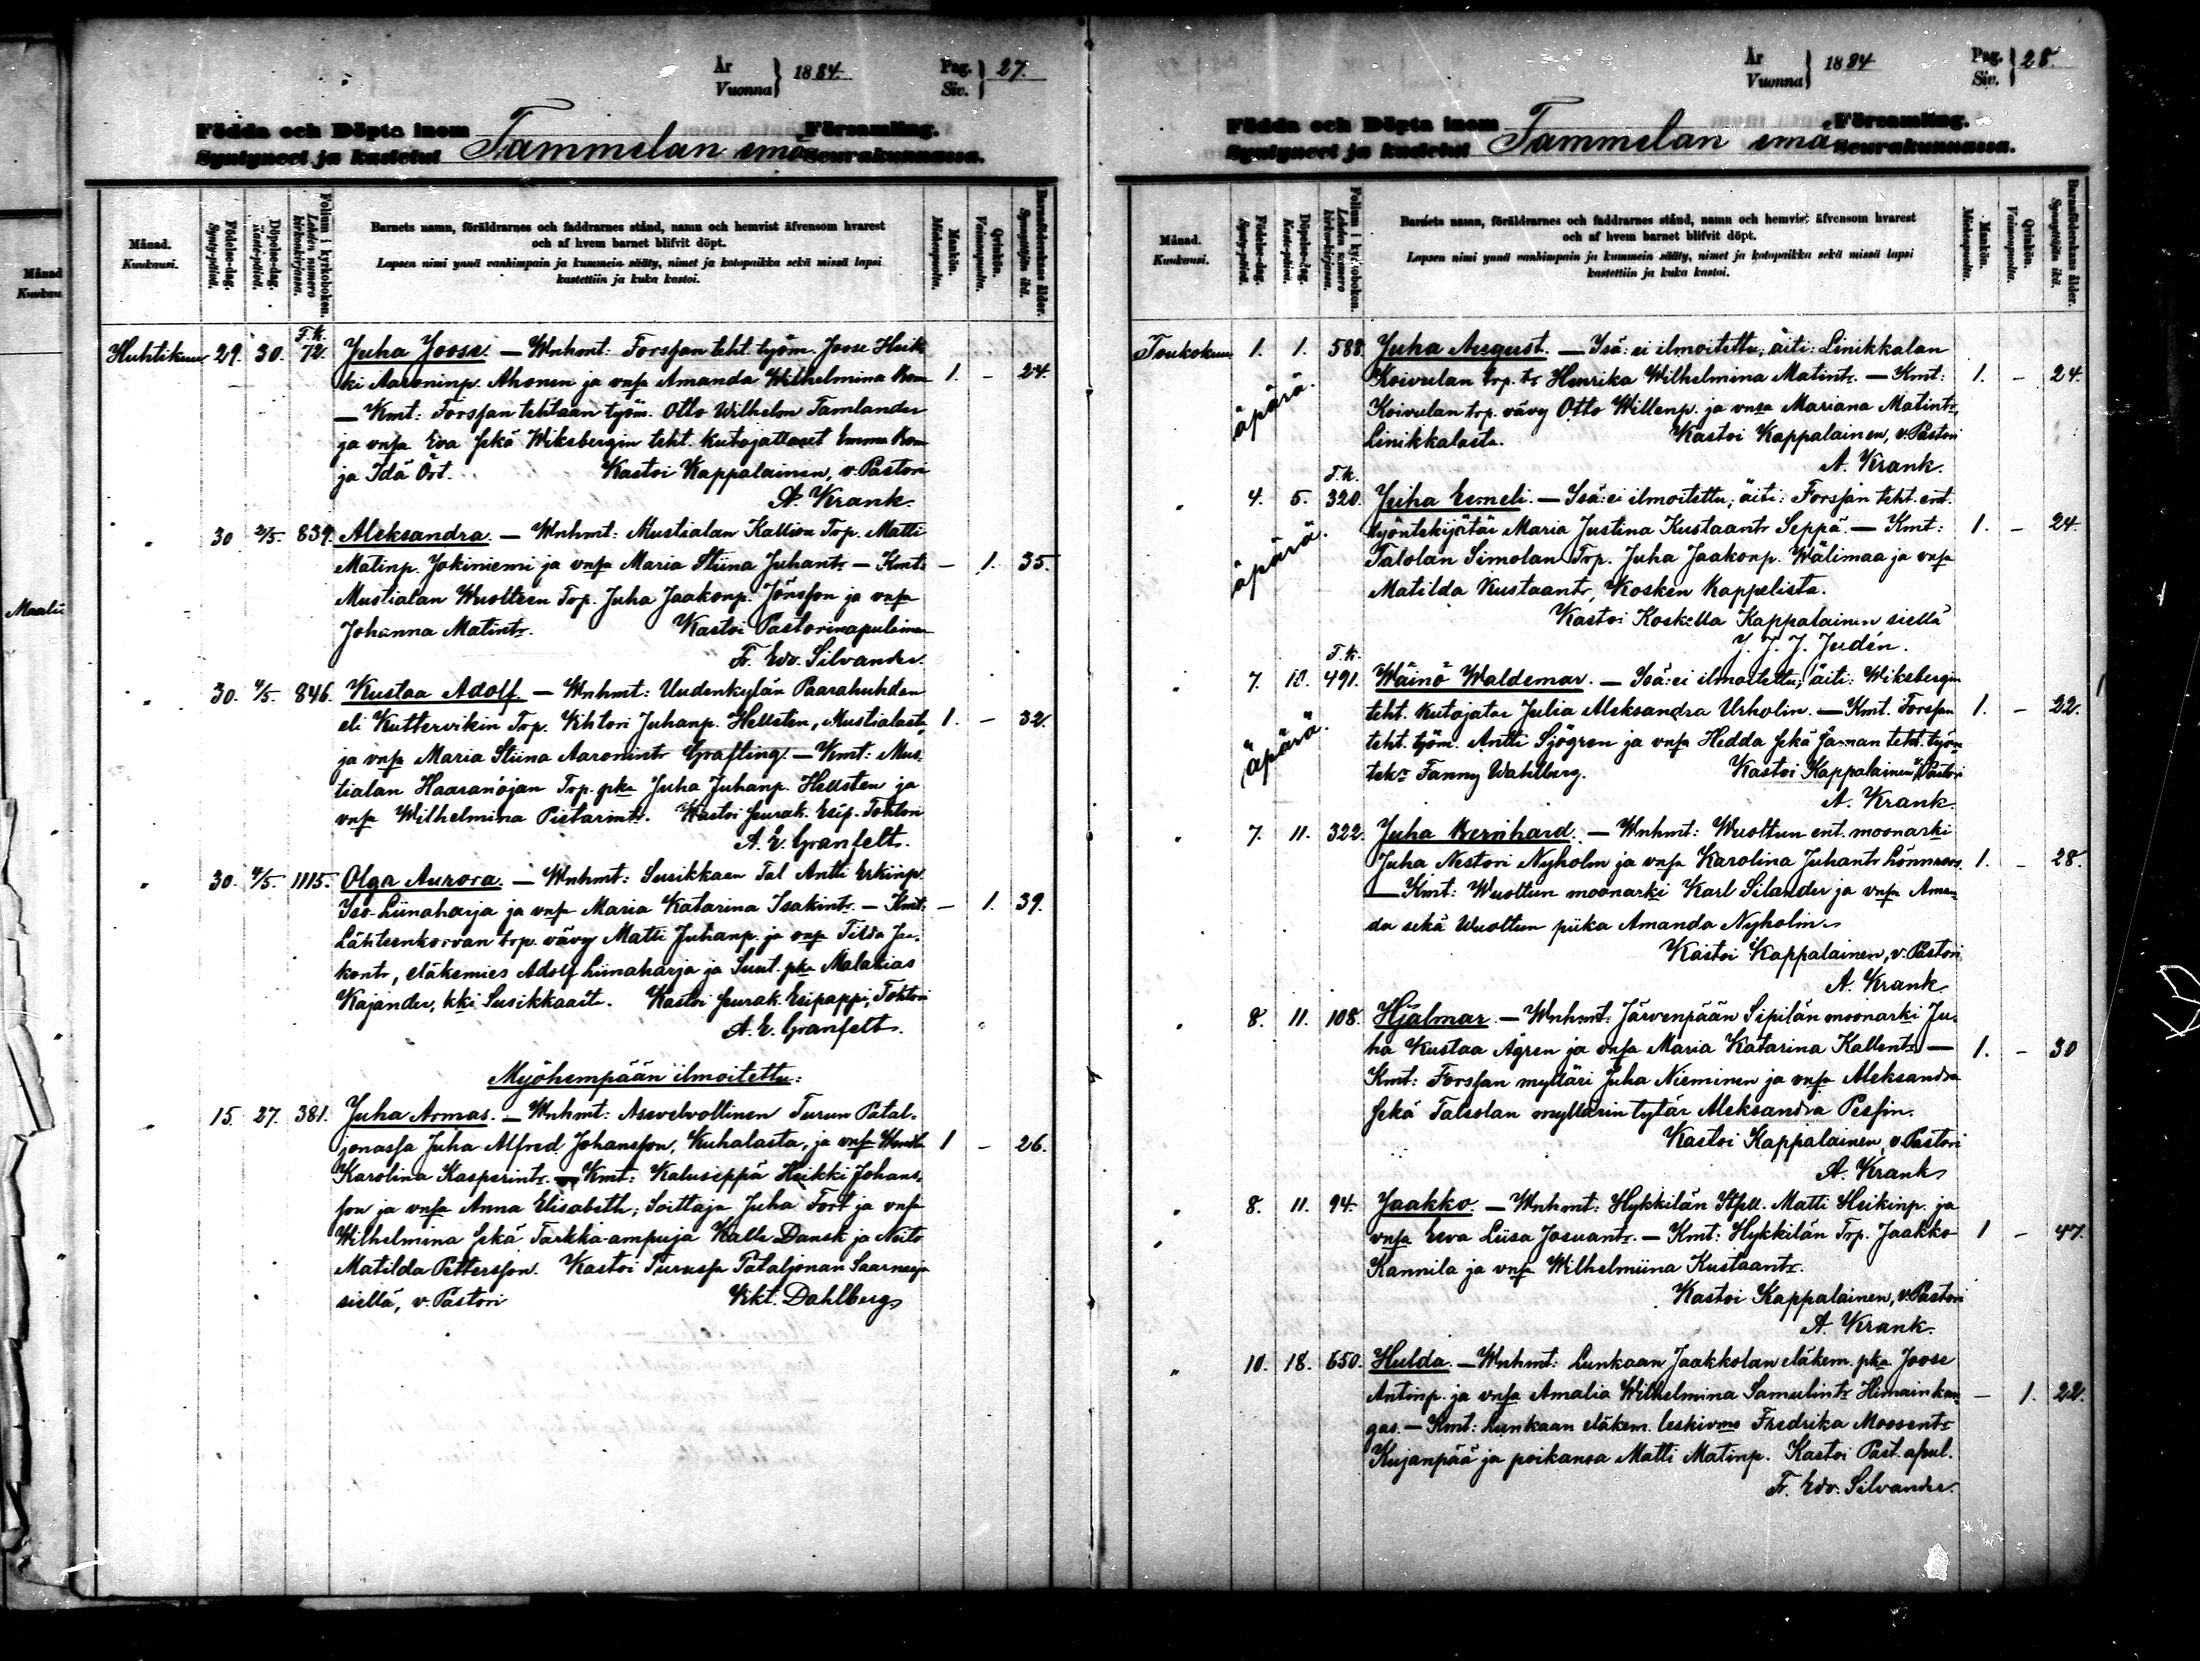 År
Vuonna } 1884. Pag.
Siv. } 27.
Födda och Döpta inom
Syntyneet ja kastetut Tammelan emä Församling.
Seurakunnassa.
Månad.
Kuukausi.
Födelse-dag.
Synty-päivä.
Döpelse-dag.
Kaste-päivä.
Folium i kyrkoboken.
Lehden numero kirkonkirjassa.
Barnets namn, föräldrarnes och faddrarnes stånd, namn och hemvist äfvensom hvarest
och af hvem barnet blifvit döpt.
Lapsen nimi ynnä vanhimpain ja kummein sääty, nimet ja kotopaikka sekä missä lapsi
kastettiin ja kuka kastoi.
Mankön.
Miehenpuolta.
Qvinkön.
Vaimonpuolta.
Barnaföderskans ålder.
Synnyttäjän ikä.
F.k.
Huhtikuu 29. 30. 72. Juha Joose. — Wnhmt: Forssan teht. työm. Joose Heik
ki Aaroninp. Ahonen ja vmsa Amanda Wilhelmina Kom 1. - 24.
— Kmt: Forssan tehtaan työm. Otto Wilhelm Tamlander
ja vmsa Eva sekä Wiksbergin teht. kutojattaret Emma Kom
ja Ida Ört. Kastoi Kappalainen, v. Pastori
A. Krank.
" 30 2/5. 839. Aleksandra. — Wnhmt: Mustialan Kallion Trp. Matti
Matinp. Jokiniemi ja vmsa Maria Stiina Juhantr — Kmt: - 1. 35.
Mustialan Wuolteen Trp. Juha Jaakonp. Jönsson ja vmsa
Johanna Matintr. Kastoi Pastorinapulainen
Fr. Edv. Silvander.
" 30. 4/5. 846. Kustaa Adolf — Wnhmt: Uudenkylän Paarahuhdan
eli Kuttervikin Trp. Vihtori Juhanp. Hellsten, Mustialasta, 1. - 32.
ja vmsa Maria Stiina Aaronintr Grafting. — Kmt: Mus-
tialan Haaranojan Trp. pka Juha Juhanp. Hellsten ja
vmsa Wilhelmina Pietarintr. Kastoi seurak. Esip. Tohtori
A. E. Granfelt.
" 30. 4/5. 1115. Olga Aurora. — Wnhmt: Susikkaan Tal Antti Erkinp
Iso-Liinaharja ja vmsa Maria Katarina Isakintr. — Kmt: - 1. 39.
Lähteenkorvan trp. vävy Matti Juhanp. ja vmsa Tilda Jaa-
kontr, eläkemies Adolf Liinaharja ja Suut. pka Malakias
Kajander, kki Susikkaalta. Kastoi seurak. Esipappi, Tohtori
A. E. Granfelt.
Myöhempään ilmoitettu:
" 15. 27. 381. Juha Armas. — Wnhmt: Asevelvollinen Turun Patal-
jonassa Juha Alfred Johansson, Kuhalasta, ja vmsa
Karolina Kasperintr. — Kmt: Kaluseppä Heikki Johans- 1 - 26.
son ja vmsa Anna Elisabeth; Soittaja Juha Fort ja vmsa
Wilhelmina sekä Tarkka-ampuja Kalle Dansk ja Neito
Matilda Pettersson. Kastoi Turussa Pataljonan Saarnaaja
siellä, v. Pastori Vikt. Dahlberg
År
Vuonna } 1884 Pag.
Siv. } 28.
Födda och Döpta inom
Syntyneet ja kastetut Tammelan emä Församling.
Seurakunnassa.
Månad.
Kuukausi.
Födelse-dag.
Synty-päivä.
Döpelse-dag.
Kaste-päivä.
Folium i kyrkoboken.
Lehden numero kirkonkirjassa.
Barnets namn, föräldrarnes och faddrarnes stånd, namn och hemvist äfvensom hvarest
och af hvem barnet blifvit döpt.
Lapsen nimi ynnä vanhimpain ja kummein sääty, nimet ja kotopaikka sekä missä lapsi
kastettiin ja kuka kastoi.
Mankön.
Miehenpuolta.
Qvinkön.
Vaimonpuolta.
Barnaföderskans ålder.
Synnyttäjän ikä.
Toukokuu 1. 1. 588. Juha August. — Isä: ei ilmoitettu, äiti: Linikkalan
äpärä. Koivulan trp. tr Henrika Wilhelmina Matintr. — Kmt: 1. - 24.
Koivulan trp. vävy Otto Willenp. ja vmsa Mariana Matintr,
Linikkalasta. Kastoi Kappalainen, v. Pastori
A. Krank.
F.k.
" 4. 5. 320. Juha Eemeli. — Isä: ei ilmoitettu, äiti: Forssan teht. ent.
äpärä. työntekijätär Maria Justina Kustaantr Seppä. — Kmt: 1. - 24.
Talolan Simolan Trp. Juha Jaakonp. Wälimaa ja vmsa
Matilda Kustaantr, Kosken Kappelista.
Kastoi Koskella Kappalainen siellä
J. J. J. Judén.
F.k.
" 7. 10. 491. Wäinö Waldemar. — Isä: ei ilmoitettu, äiti: Wiksbergin
äpärä. teht. kutojatar Julia Aleksandra Urholin. — Kmt. Forssan 1. - 22.
teht. työm. Antti Sjögren ja vmsa Hedda sekä saman teht. työn-
tek. Fanny Wahlberg. Kastoi Kappalainen, v. Pastori
A. Krank.
" 7. 11. 322. Juha Bernhard. — Wnhmt: Wuoltun ent. moonarki
Juha Nestori Nyholm ja vmsa Karolina Juhantr Lönnroos. 1. - 28.
— Kmt: Wuoltun moonarki Karl Silander ja vmsa Aman-
da sekä Wuoltun piika Amanda Nyholm.
Kastoi Kappalainen, v. Pastori
A. Krank.
" 8. 11. 108. Hjalmar. — Wnhmt: Järvenpään Sipilän moonarki Ju-
ha Kustaa Ågren ja vmsa Maria Katarina Kallentr. — 1. - 30
Kmt: Forssan mylläri Juha Nieminen ja vmsa Aleksandra
sekä Talsolan myllärin tytär Aleksandra Pessin.
Kastoi Kappalainen, v. Pastori
A. Krank
" 8. 11. 94. Jaakko. — Wnhmt: Hykkilän Itsell. Matti Heikinp. ja
" vmsa Eeva Liisa Josuantr. — Kmt: Hykkilän Trp. Jaakko 1 - 47.
Kannila ja vmsa Wilhelmiina Kustaantr.
Kastoi Kappalainen, v. Pastori
A. Krank.
" 10. 18. 650. Hulda. — Wnhmt: Lunkaan Jaakkolan eläkem. pka Joose
Antinp. ja vmsa Amalia Wilhelmina Samulintr Himainkan- - 1. 22.
gas. — Kmt: Lunkaan eläkem. leskivmo Fredrika Moosentr
Kujanpää ja poikansa Matti Matinp. Kastoi Past. apul.
Fr. Edv. Silvander.